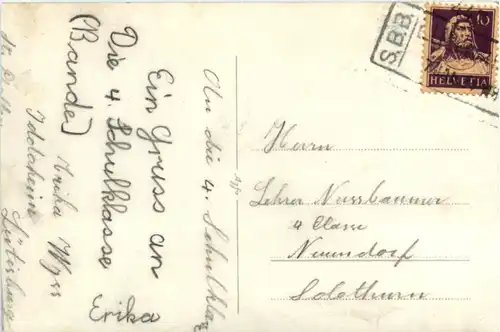 An die 4. Schulklasse
Ein Gruss an
Die 4. Schulklasse
(Bande)
Erika
Erika Wyss
Idotaheim
Lütisburg
St.
S.B.B.
10
HELVETIA
Herrn
Lehrer Nussbaumer
4 Classe
Neuendorf
Solothurn